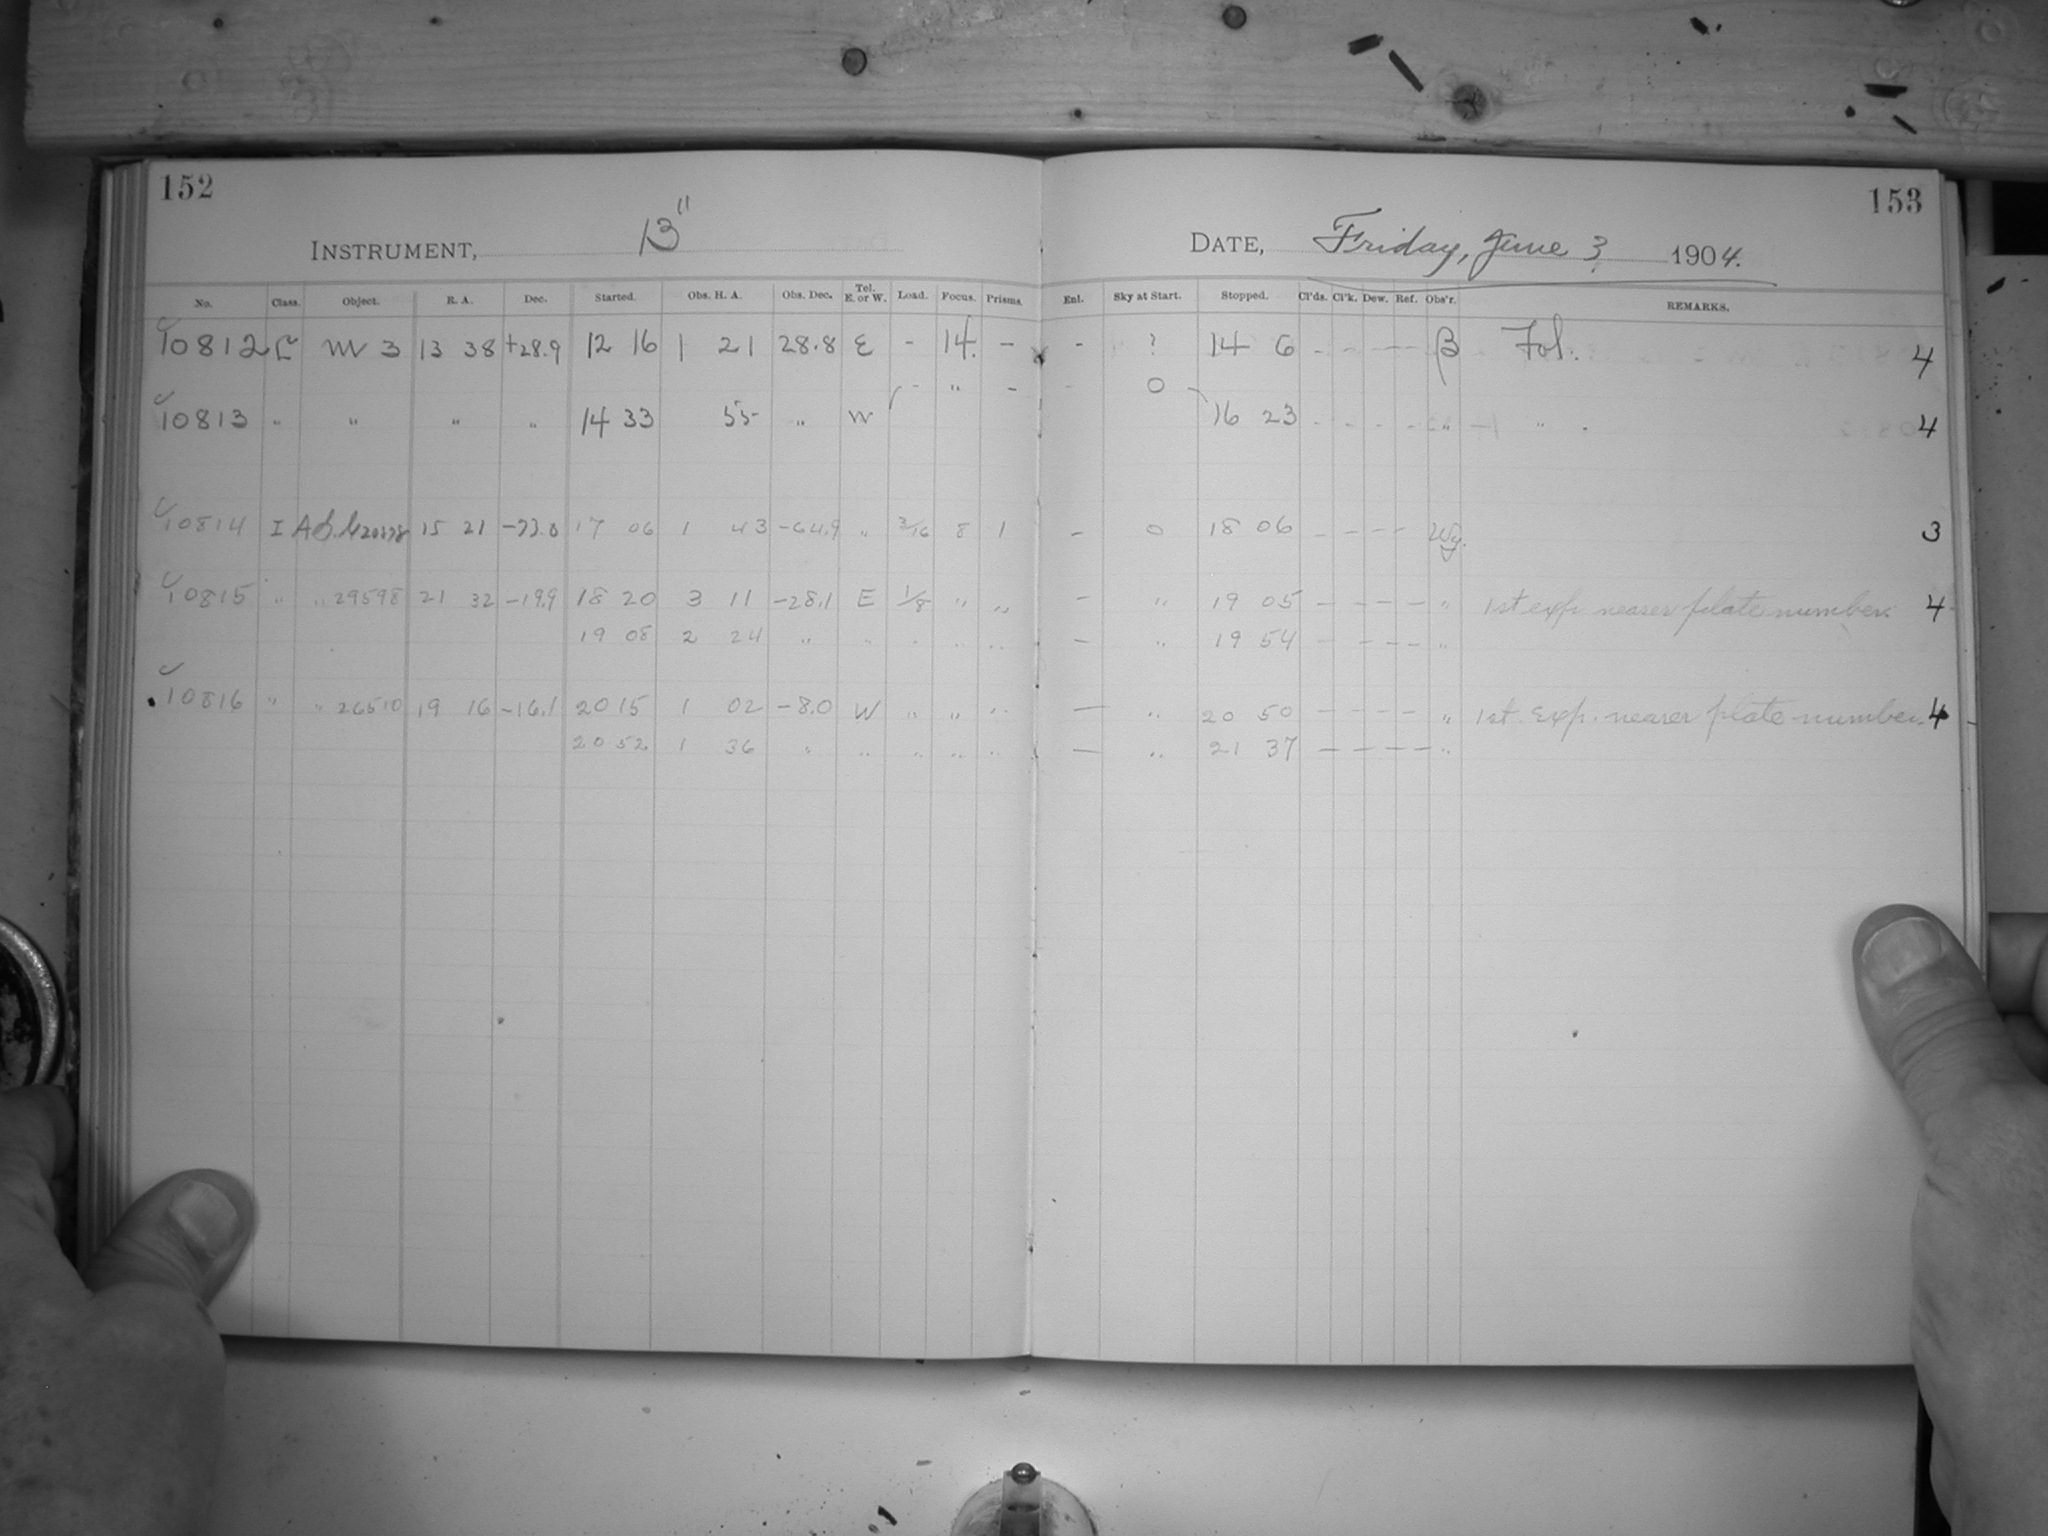 152
INSTRUMENT, 13"
No. Class. Object. R. A. Dec. Started. Obs. H. A. Obs. Dec. Tel. E. or W. Load. Focus. Prisms.
10812 L M 3 13 38 +28.9 12 16 1 21 28.8 E - 14. -
- " -
10813 " " " " 14 33 55 " W
10814 I 15 21 -73.0 17 06 1 43 -64.9 " 3/16 8 1
10815 " " 29598 21 32 -19.9 18 20 3 11 -28.1 E 1/8 " "
19 08 2 24 " " " " "
10816 " " 26510 19 16 -16.1 20 15 1 02 -8.0 W " " "
20 52 1 36 " " " " "
153
DATE, Friday, June 3, 1904.
Enl. Sky at Start. Stopped. Cl'ds. Cl'k. Dew. Ref. Obs'r. REMARKS.
- ? 14 6 - - - - β Fol. 4
- 0
16 23 - - - - " " 4
- 0 18 06 - - - - 3
- " 19 05 - - - - " 1st exp. nearer plate number. 4
- " 19 54 - - - - "
- " 20 50 - - - - " 1st. exp. nearer plate number. 4
- " 21 37 - - - - "